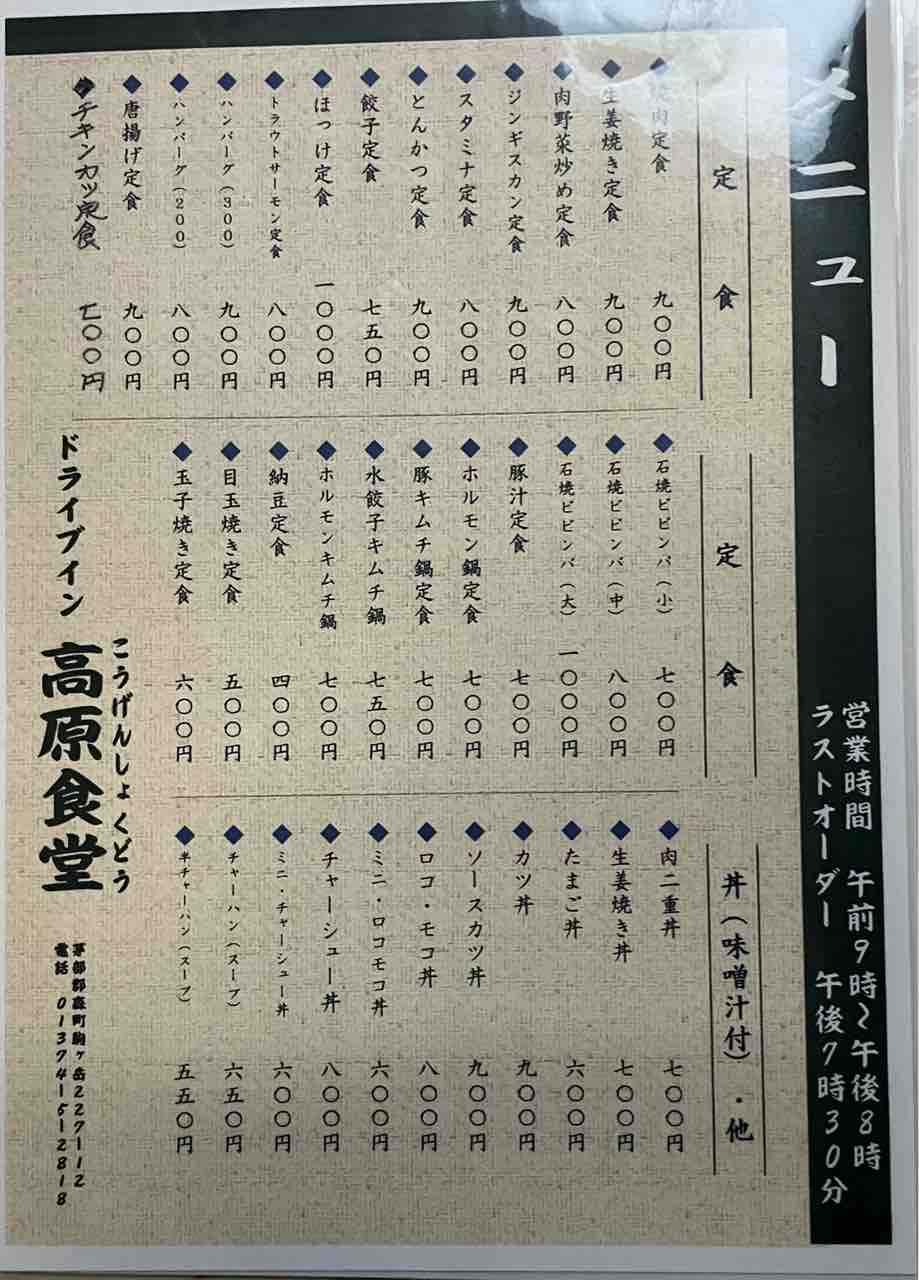 メニュー
営業時間 午前9時～午後8時
ラストオーダー 午後7時30分
定食
肉定食 九〇〇円
生姜焼き定食 九〇〇円
肉野菜炒め定食 八〇〇円
ジンギスカン定食 九〇〇円
スタミナ定食 八〇〇円
とんかつ定食 九〇〇円
餃子定食 七五〇円
ほっけ定食 一〇〇〇円
トラウトサーモン定食 八〇〇円
ハンバーグ(300) 九〇〇円
ハンバーグ(200) 八〇〇円
唐揚げ定食 九〇〇円
チキンカツ定食 七〇〇円
定食
石焼ビビンバ(小) 七〇〇円
石焼ビビンバ(中) 八〇〇円
石焼ビビンバ(大) 一〇〇〇円
豚汁定食 七〇〇円
ホルモン鍋定食 七〇〇円
豚キムチ鍋定食 七〇〇円
水餃子キムチ鍋 七五〇円
ホルモンキムチ鍋 七〇〇円
納豆定食 四〇〇円
目玉焼き定食 五〇〇円
玉子焼き定食 六〇〇円
丼(味噌汁付)・他
肉二重丼 七〇〇円
生姜焼き丼 七〇〇円
たまご丼 六〇〇円
カツ丼 九〇〇円
ソースカツ丼 九〇〇円
ロコ・モコ丼 八〇〇円
ミニ・ロコモコ丼 六〇〇円
チャーシュー丼 八〇〇円
ミニ・チャーシュー丼 六〇〇円
チャーハン(スープ) 六五〇円
半チャーハン(スープ) 五五〇円
こうげんしょくどう
ドライブイン 高原食堂
茅部郡森町駒ヶ岳227-12
電話 01374-5-2818